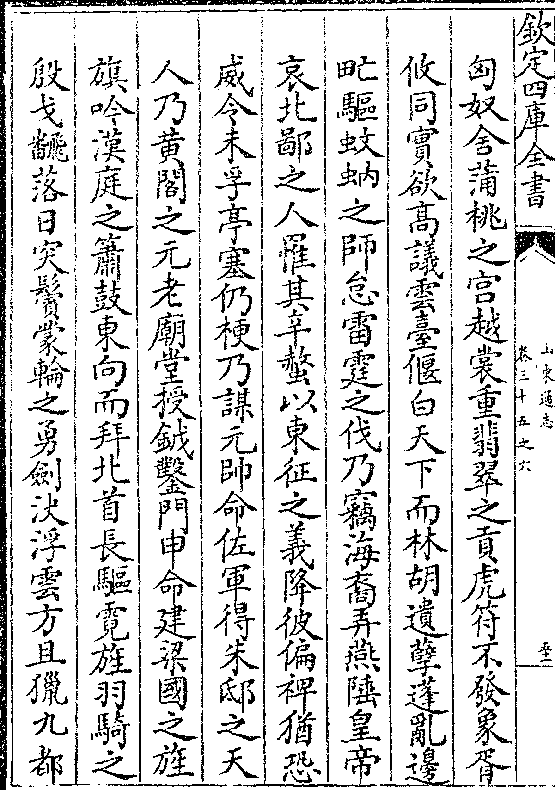 欽定四庫全書
山東通志
卷三十五之六
匈奴舍蒲桃之宮越裳重翡翠之貢虎符不發象胥
攸同實欲高議雲臺偃白天下而林胡遺孽蓬亂邊
甿驅蚊蚋之師怠雷霆之伐乃竊海裔弄燕陲皇帝
哀北鄙之人罹其辛螫以東征之義降彼偏裨猶恐
威令未孚亭塞仍梗乃謀元帥命佐軍得朱邸之天
人乃黃閣之元老廟堂授鉞鑿門申命建梁國之旌
旗吟漢庭之簫鼓東向而拜北首長驅霓旌羽騎之
殷戈鸀落日突鬢蒙輪之勇劍決浮雲方且獵九都